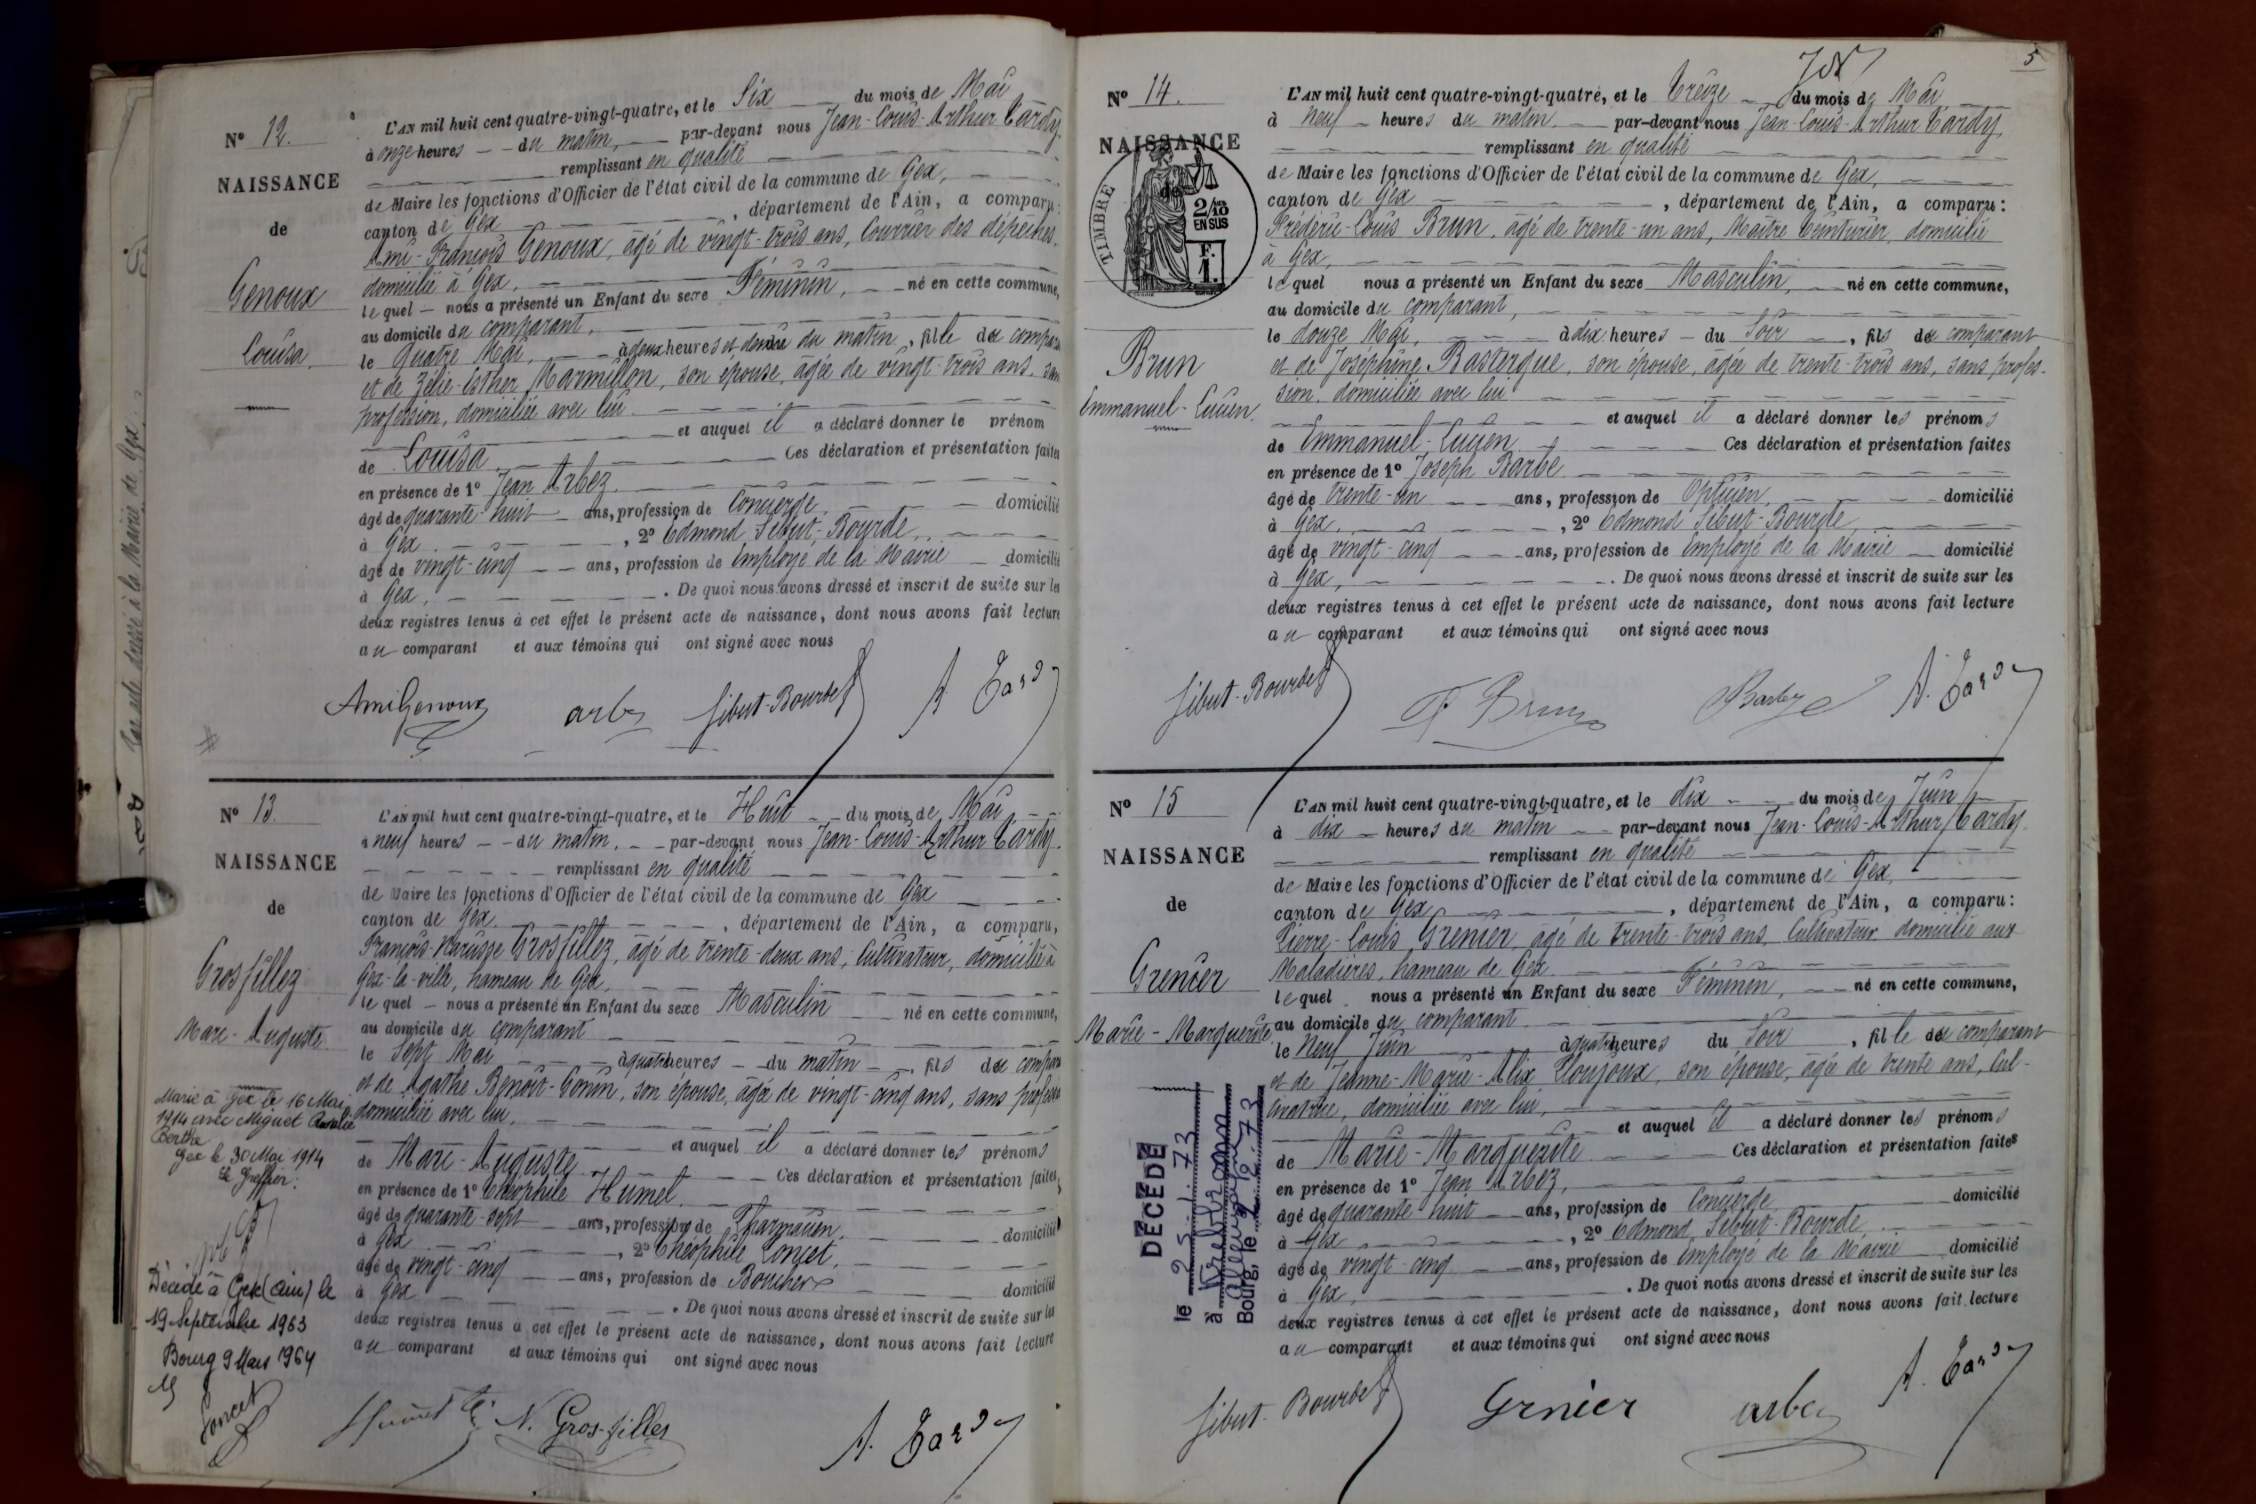 Nº 12.
NAISSANCE
de
Genoux
Louisa.
L'AN mil huit cent quatre-vingt-quatre, et le Six du mois de Mai
à onze heures du matin, par-devant nous Jean-Louis-Arthur Tardy,
remplissant en qualité
de Maire les fonctions d'Officier de l'état civil de la commune de Gex,
canton de Gex, département de l'Ain, a comparu:
Ami-François Genoux, âgé de vingt-trois ans, Courrier des dépêches,
domicilié à Gex,
lequel nous a présenté un Enfant du sexe Féminin, né en cette commune,
au domicile du comparant,
le quatre Mai, à deux heures et demie du matin, fille du compara
et de Zélie-Esther Marmillon, son épouse, âgée de vingt-trois ans, san
profession, domiciliée avec lui.
et auquel il a déclaré donner le prénom
de Louisa. Ces déclaration et présentation faites
en présence de 1º Jean Arbez
âgé de quarante-huit ans, profession de Concierge, domicilié
à Gex, 2º Edmond Sibut-Bourde,
âgé de vingt-cinq ans, profession de Employé de la Mairie domicilié
à Gex, . De quoi nous avons dressé et inscrit de suite sur les
deux registres tenus à cet effet le présent acte de naissance, dont nous avons fait lecture
au comparant et aux témoins qui ont signé avec nous
Ami Genoux arbez Sibut-Bourde A. Tardy
Nº 13.
NAISSANCE
de
Grosfillez
Marc-Auguste.
Marié à Gex le 16 Mai
1914 avec Miguet Rosalie
Berthe
Gex le 30 Mai 1914
Le Greffier:
Décédé à Gex (Ain) le
19 Septembre 1963
Bourg 9 Mars 1964
Poncet
L'AN mil huit cent quatre-vingt-quatre, et le Huit du mois de Mai
à neuf heures du matin, par-devant nous Jean-Louis-Arthur Tardy,
remplissant en qualité
de Maire les fonctions d'Officier de l'état civil de la commune de Gex
canton de Gex, département de l'Ain, a comparu,
François-Narcisse Grosfillez, âgé de trente-deux ans, Cultivateur, domicilié à
Gex-la-ville, hameau de Gex,
lequel nous a présenté un Enfant du sexe Masculin né en cette commune,
au domicile du comparant
le Sept Mai à quatre heures du matin, fils du compara
et de Agathe Benoit-Gonin, son épouse, âgée de vingt-cinq ans, sans profession
domiciliée avec lui,
et auquel il a déclaré donner les prénoms
de Marc-Auguste. Ces déclaration et présentation faites
en présence de 1º Théophile Humel.
âgé de quarante-sept ans, profession de Pharmacien, domicilié
à Gex, 2º Théophile Poncet,
âgé de vingt-cinq ans, profession de Boucher domicilié
à Gex . De quoi nous avons dressé et inscrit de suite sur les
deux registres tenus à cet effet le présent acte de naissance, dont nous avons fait lecture
au comparant et aux témoins qui ont signé avec nous
N. Gros-fillez A. Tardy
5
Nº 14.
NAISSANCE
de
TIMBRE
2/10
EN SUS
F.
1.
Brun
Emmanuel-Lucien.
L'AN mil huit cent quatre-vingt-quatre, et le treize du mois de Mai
à neuf heures du matin, par-devant nous Jean-Louis-Arthur Tardy,
remplissant en qualité
de Maire les fonctions d'Officier de l'état civil de la commune de Gex,
canton de Gex, département de l'Ain, a comparu:
Frédéric-Louis Brun, âgé de trente-un ans, Maître teinturier, domicilié
à Gex,
lequel nous a présenté un Enfant du sexe Masculin, né en cette commune,
au domicile du comparant,
le douze Mai, à dix heures du Soir, fils du comparant
et de Joséphine Bastergue, son épouse, âgée de trente-trois ans, sans profes-
sion, domiciliée avec lui
et auquel il a déclaré donner les prénoms
de Emmanuel-Lucien Ces déclaration et présentation faites
en présence de 1º Joseph Barbe
âgé de trente-un ans, profession de Opticien, domicilié
à Gex, 2º Edmond Sibut-Bourde
âgé de vingt-cinq ans, profession de Employé de la Mairie domicilié
à Gex, . De quoi nous avons dressé et inscrit de suite sur les
deux registres tenus à cet effet le présent acte de naissance, dont nous avons fait lecture
au comparant et aux témoins qui ont signé avec nous
Sibut-Bourde F. Brun A. Tardy
Nº 15
NAISSANCE
de
Grenier
Marie-Marguerite
DÉCÉDÉ
le 25.1.73
à
Bourg, le
L'AN mil huit cent quatre-vingt-quatre, et le dix du mois de Juin
à dix heures du matin par-devant nous Jean-Louis-Arthur Tardy.
remplissant en qualité
de Maire les fonctions d'Officier de l'état civil de la commune de Gex,
canton de Gex, département de l'Ain, a comparu:
Pierre-Louis Grenier, âgé de trente-trois ans, Cultivateur domicilié aux
Maladières, hameau de Gex
lequel nous a présenté un Enfant du sexe Féminin, né en cette commune,
au domicile du comparant
le Neuf Juin à quatre heures du Soir, fille du comparant
et de Jeanne-Marie-Alix Poujoux, son épouse, âgée de trente ans, Cul-
tivatrice, domiciliée avec lui,
et auquel il a déclaré donner les prénoms
de Marie-Marguerite Ces déclaration et présentation faites
en présence de 1º Jean Arbez,
âgé de quarante-huit ans, profession de Concierge domicilié
à Gex, 2º Edmond Sibut-Bourde
âgé de vingt-cinq ans, profession de Employé de la Mairie domicilié
à Gex, . De quoi nous avons dressé et inscrit de suite sur les
deux registres tenus à cet effet le présent acte de naissance, dont nous avons fait lecture
au comparant et aux témoins qui ont signé avec nous
Sibut-Bourde Grnier arbez A. Tardy